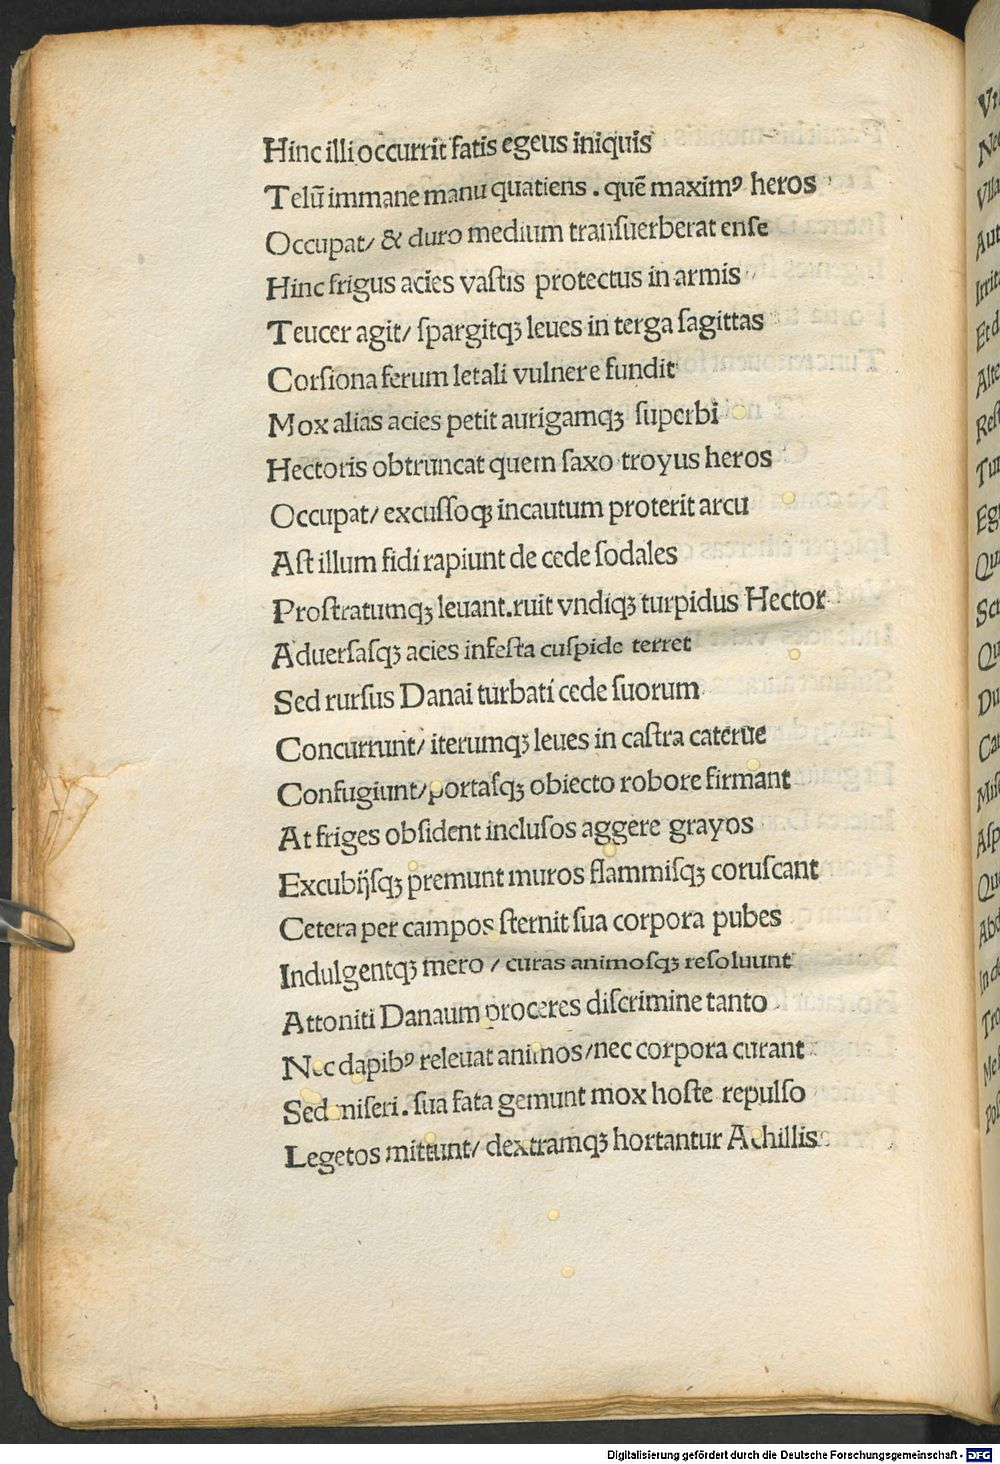 Hinc illi occurrit fatis egeus iniquis
Telū immane manu quatiens . quē maximꝰ heros
Occupat/ & duro medium tranſuerberat enſe
Hinc frigus acies vaſtis protectus in armis
Teucer agit/ ſpargitqꝫ leues in terga ſagittas
Corſiona ferum letali vulnere fundit
Mox alias acies petit aurigamqꝫ ſuperbi
Hectoris obtruncat quem ſaxo troyus heros
Occupat/ excuſſoqꝫ incautum proterit arcu
Aſt illum fidi rapiunt de cede ſodales
Proſtratumqꝫ leuant.ruit vndiqꝫ turpidus Hector
Aduerſaſqꝫ acies infeſta cuſpide terret
Sed rurſus Danai turbati cede ſuorum
Concurrunt/ iterumqꝫ leues in caſtra caterue
Confugiunt/portaſqꝫ obiecto robore firmant
At friges obſident incluſos aggere grayos
Excubijſqꝫ premunt muros flammiſqꝫ coruſcant
Cetera per campos ſternit ſua corpora pubes
Indulgentqꝫ mero / curas animoſqꝫ reſoluunt
Attoniti Danaum proceres diſcrimine tanto
Nec dapibꝰ releuat animos/nec corpora curant
Sed miſeri . ſua fata gemunt mox hoſte repulſo
Legetos mittunt/ dextramqꝫ hortantur Achillis
Digitalisierung gefördert durch die Deutsche Forschungsgemeinschaft - DFG